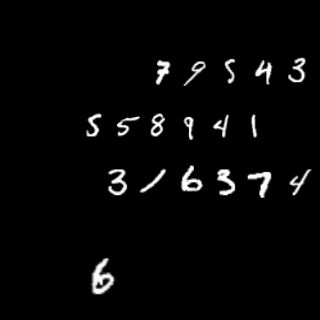 7 9 5 4 3
5 5 8 9 4 1
3 1 6 3 7 4
6